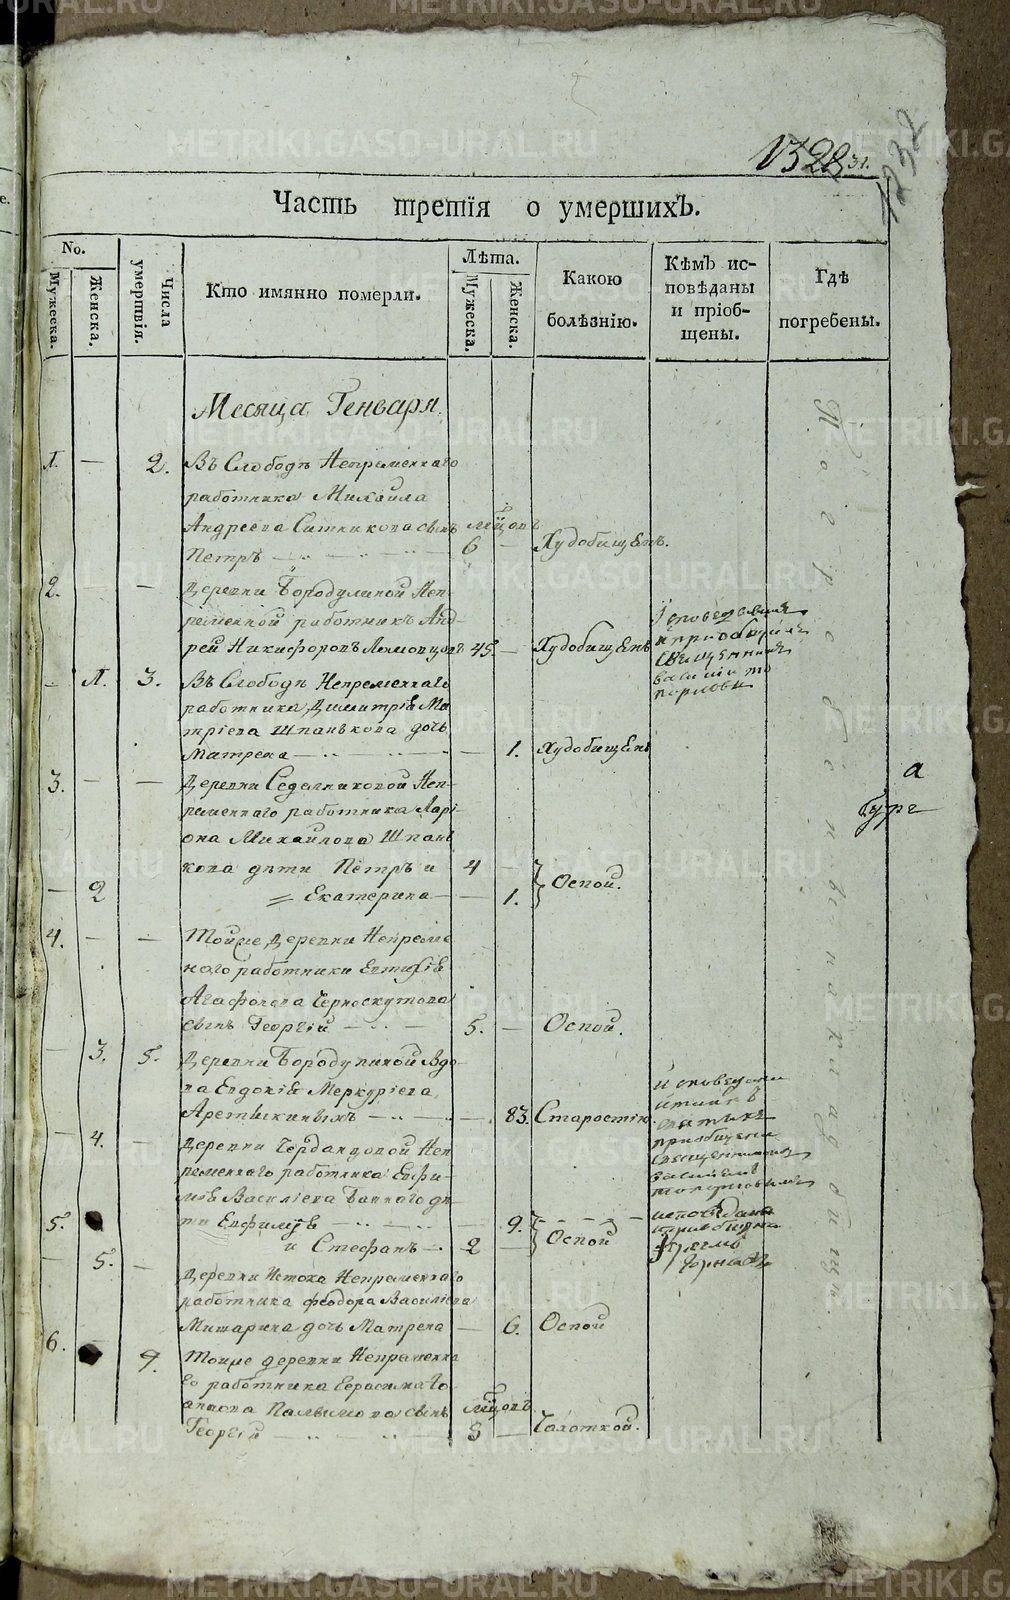 1328
31.
1232
Часть третія о умершихъ.
No.
Мужеска.
Женска.
Числа умертвія.
Кто имянно померли.
Лѣта.
Мужеска.
Женска.
Какою болѣзнію.
Кѣмъ исповѣданы и пріобщены.
Гдѣ погребены.
Месяца Генваря
1. — 2. Въ Слободѣ Непременнаго
работника Михаила
Андреева Ситникова сынъ мцовъ
Петръ — 6 — Худобищемъ.
2. — — Деревни Бородулиной Неп-
ременной работникъ Анд-
рей Никифоровъ 45. — Худобищемъ
Исповедыванъ
и приобщенъ
священникомъ
— 1. 3. Въ Слободѣ Непременнаго
работника Димитрія Ма
тріева Шпанькова дочь
Матрена — — 1. Худобищемъ
3. — — Деревни Седелниковой Неп-
ременнаго работника Лари
она Михайлова Шпань
кова дѣти Петръ и 4 —
— 2 = Екатерина — — 1. Оспой.
4. — — Тойже деревни Непреме
ного работника Евтихія
Агафонова Черноскутова
сынъ Георгій — 5. — Оспой.
— 3. 5. Деревни Бородулиной Вдо
ва Евдокія Меркуріева
— — 83. Старостію.
исповедана
приобщена
священникомъ
— 4. — Деревни Неп
ременнаго работника Евфи-
мія Василіева дѣ
ти Евфимія — — 9.
5. и Стефанъ — 2 — Оспой
исповѣдана
приобщена
— 5. — Деревни Истока Непременнаго
работника Феодора Василіева
Мишарина дочь Матрена — 6. Оспой
6. — 9. Тойже деревни Непременна
го работника Герасима Го
сынъ мцовъ
Георгій — 3 — Чахоткой.
Погребены на кладбищи
а